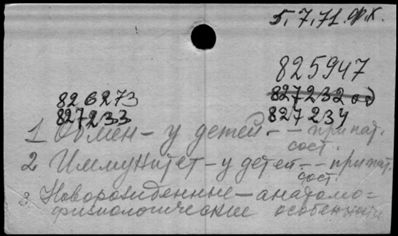 5.7.71. ф.к.
825947
826273
827232 од
827233
827234
1 Обмен - у детей - - при пат.
сост.
2 Иммунитет - у детей - - при пат.
сост.
3. Новорожденные - анатомо=
физиологические особенности